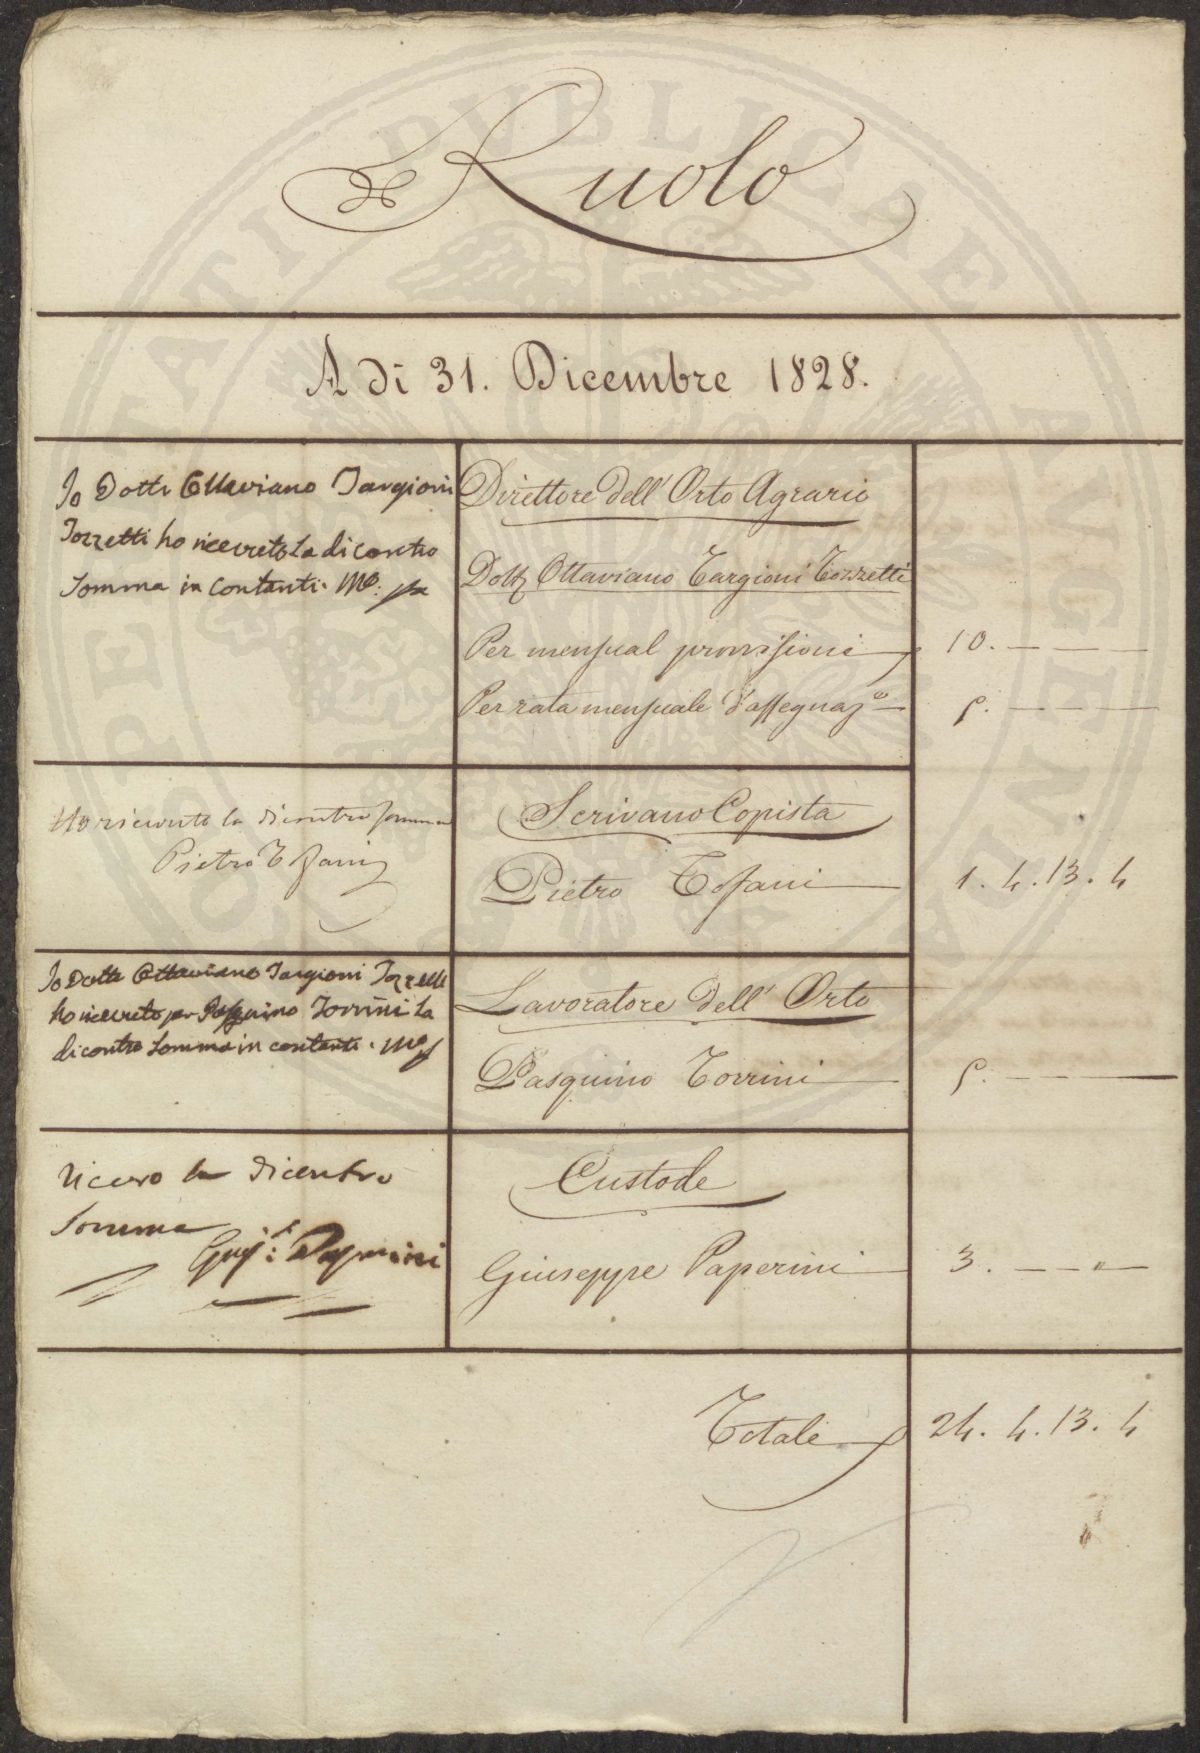 Ruolo
A dì 31. Dicembre 1828.
Io Dottr Ottaviano Targioni
Tozzetti ho ricevuto La dicontro
Somma in Contanti. Mo. pa
Direttore dell' Orto Agrario
Dottr Ottaviano Targioni Tozzetti
Per mensual provisioni 10. — — —
Per rata mensuale d'assegnazo — 5. — — —
Ho ricevuto la dicontro somma
Pietro Tofani
Scrivano Copista
Pietro Tofani — 1. 4. 13. 4
Io Dottr Ottaviano Targioni Tozzetti
ho ricevuto per Pasquino Torrini La
dicontro Somma in contanti. Mo pa
Lavoratore dell' Orto
Pasquino Torrini — 5. — — —
Ricevo la dicontro
Somma
Giuse: Paperini
Custode
Giuseppe Paperini — 3. — — " —
Totale 24. 4. 13. 4
PVBLICAE VTILITATI AVGENDAE